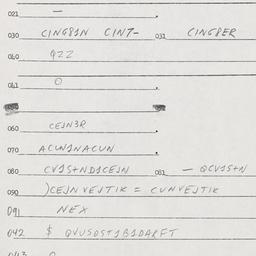 021 —
030 CINGBIN CINT- 031 CINGBER
040 922
041 0
060 CEJN3R
070 ACWN1NACUN
080 CV1S+ND1CEJN 081 — QCV1S+N
090 )CEJN VEJTIK = CUNVEJTIK
091 NEX
042 $ QVUSOST1B1DARFT
043 0